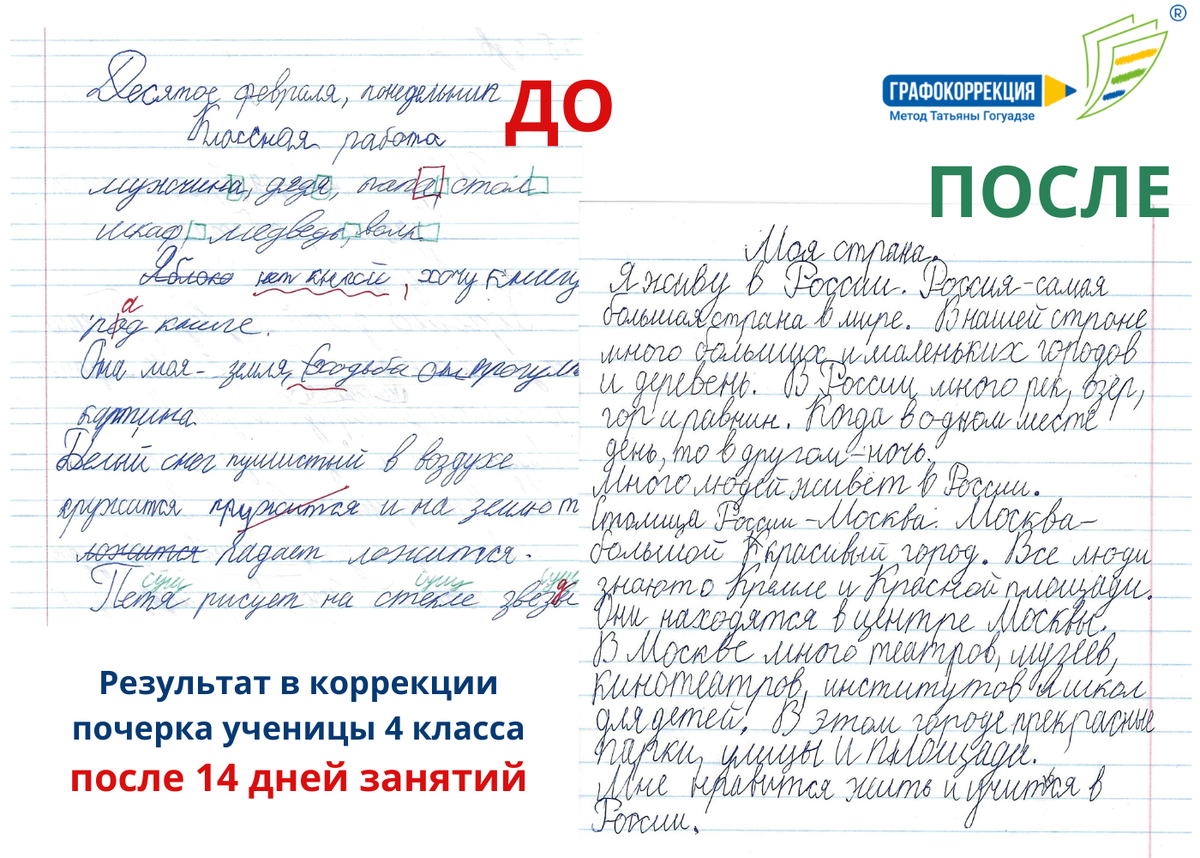 ДО
Десятое февраля, понедельник
Классная работа
мужчина, дядя, папа, стол
шкаф, медведь, волк
Яблоко нет книгой, хочу книгу
а
род книге.
Она моя - земля, Сходьба от прогулк
картина.
Белый снег пушистный в воздухе
кружится кружится и на землю т
ложится падает ложится.
сущ сущ сущ
Петя рисует на стекле звезды
Результат в коррекции
почерка ученицы 4 класса
после 14 дней занятий
®
ГРАФОКОРРЕКЦИЯ
Метод Татьяны Гогуадзе
ПОСЛЕ
Моя страна.
Я живу в России. Россия-самая
большая страна в мире. В нашей стране
много больших и маленьких городов
и деревень. В России много рек, озёр,
гор и равнин. Когда в одном месте
день, то в другом-ночь.
Много людей живёт в России.
Столица России-Москва. Москва-
большой красивый город. Все люди
знают о Кремле и Красной площади.
Они находятся в центре Москвы.
В Москве много театров, музеев,
кинотеатров, институтов и школ
для детей. В этом городе прекрасные
парки, улицы и площади.
Мне нравится жить и учиться в
России.